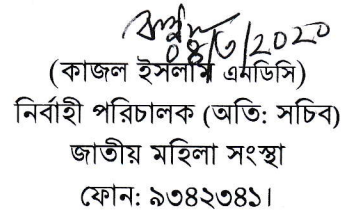 ০৪/৩/২০২০
(কাজল ইসলাম এনডিসি)
নির্বাহী পরিচালক (অতি: সচিব)
জাতীয় মহিলা সংস্থা
ফোন: ৯৩৪২৩৪১।